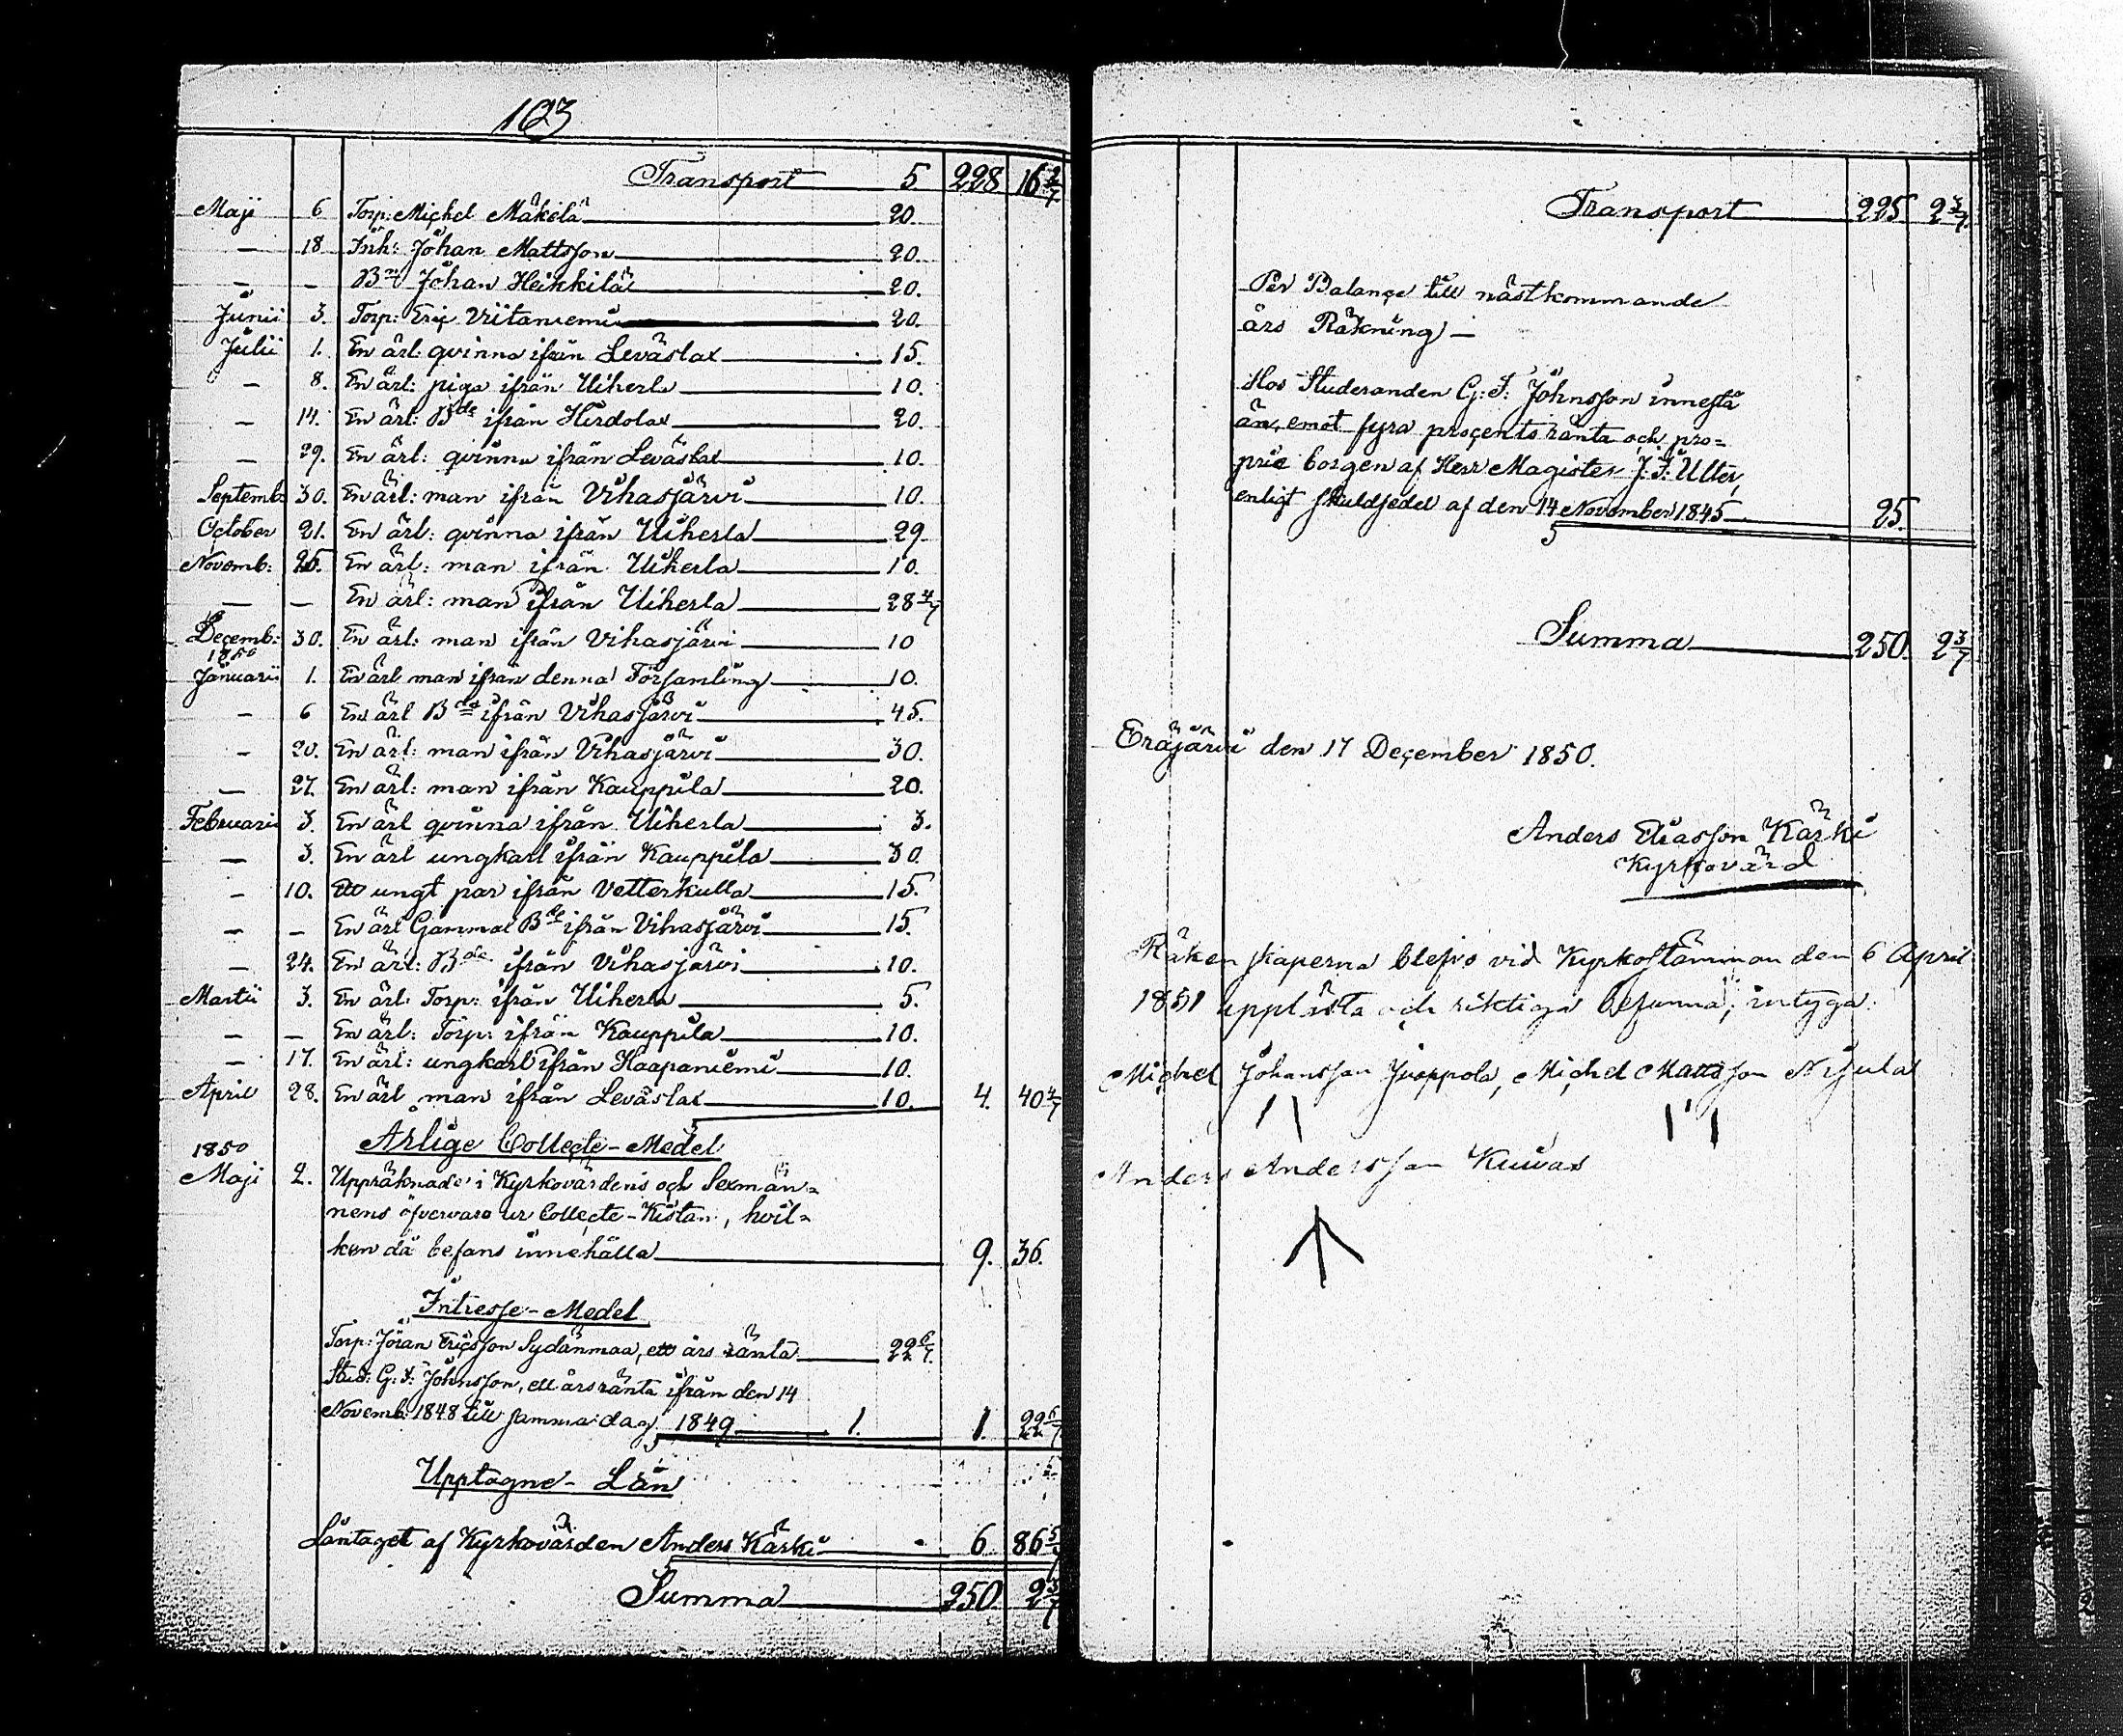 103
Transport 5 228 16 2/7
Maji 6 Torp: Michel Mäkelä 20.
— 18 Inh: Johan Mattsson 20.
— — Bn Johan Heikkilä 20.
Junii 3. Torp: Eric Viitaniemi 20.
Julii 1. En ärl: qvinna ifrån Leväslax 15.
— 8. En ärl: piga ifrån Uiherla 10.
— 14. En ärl: Bde ifrån Hirdolax 20.
— 29. En ärl: qvinna ifrån Leväslax 10.
Septemb: 30. En ärl: man ifrån Vihasjärvi 10.
October 21. En ärl: qvinna ifrån Uiherla 29
Novemb: 25. En ärl: man ifrån Uiherla 10.
— — En ärl: man ifrån Uiherla 28 4/7
Decemb: 30. En ärl: man ifrån Vihasjärvi 10
1850
Januarii 1. En ärl man ifrån denna Församling 10.
— 6 En ärl Bde ifrån Vihasjärvi 45.
— 20. En ärl: man ifrån Vihasjärvi 30.
— 27. En ärl: man ifrån Kauppila 20.
Februarii 3. En ärl qvinna ifrån Uiherla 3.
— 3. En ärl ungkarl ifrån Kauppila 30.
— 10. Ett ungt par ifrån Vetterkulla 15.
— — En ärl Gammal Bde ifrån Vihasjärvi 15.
— 24. En ärl: Bde ifrån Vihasjärvi 10.
Martii 3. En ärl: Torp: ifrån Uiherla 5.
— — En ärl: Torp: ifrån Kauppila 10.
— 17. En ärl: ungkarl ifrån Haapaniemi 10.
April 28. En ärl man ifrån Leväslax 10. 4. 40 4/7
Årlige Collecte-Medel
1850
Maji 2. Uppräknades i Kyrkovärdens och Sexmän=
nens öfvervaro ur Collecte-Kistan, hvil=
ken då befans innehålla 9. 36.
Intresse-Medel
Torp: Jöran Ericsson Sydänmaa, ett års ränta 22 6/7.
Stud: G: F: Johnsson, ett års ränta ifrån den 14
Novemb: 1848 till samma dag 1849 1. 1. 22 6/7
Upptagne-Lån
Låntaget af Kyrkovärden Anders Kärki 6 86 5/7
Summa 250. 2 3/7
Transport 225 2 3/7.
Per Balance till nästkommande
års Räkning —
Hos Studeranden G: F: Johnsson innestå
än, emot fyra procents ränta och pro=
prie borgen af Herr Magister J. F. Ulter,
enligt skuldsedel af den 14 November 1845 25.
Summa 250. 2 3/7
Eräjärvi den 17 December 1850.
Anders Eliasson Kärki
Kyrkovärd
Räkenskaperna blefvo vid Kyrkostämman den 6 April
1851 upplästa och riktiga befunna; intyga:
Michel Johansson Juoppola, Michel Mattsson Nisula
Anders Andersson Kuivas